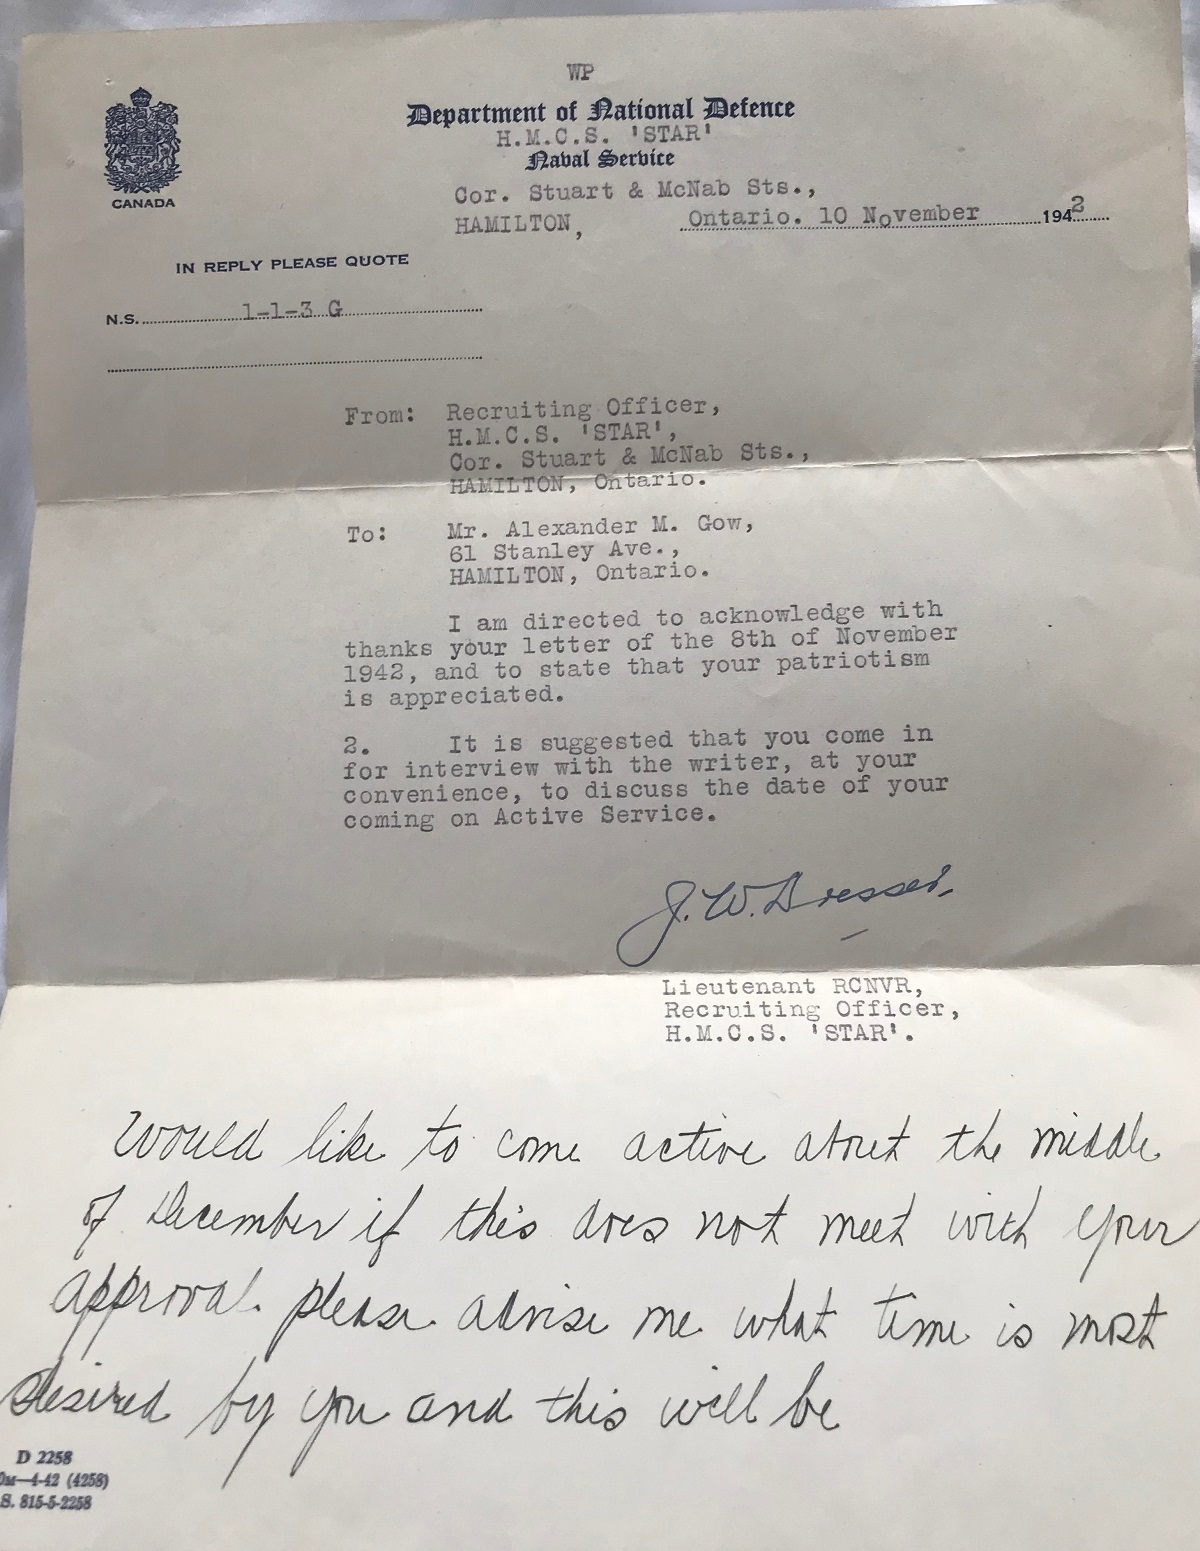 WP
Department of National Defence
H.M.C.S. 'STAR'
Naval Service
CANADA
Cor. Stuart & McNab Sts.,
HAMILTON, Ontario. 10 November 1942
IN REPLY PLEASE QUOTE
N.S. 1-1-3 G
From: Recruiting Officer,
H.M.C.S. 'STAR',
Cor. Stuart & McNab Sts.,
HAMILTON, Ontario.
To: Mr. Alexander M. Gow,
61 Stanley Ave.,
HAMILTON, Ontario.
I am directed to acknowledge with
thanks your letter of the 8th of November
1942, and to state that your patriotism
is appreciated.
2. It is suggested that you come in
for interview with the writer, at your
convenience, to discuss the date of your
coming on Active Service.
J. W.
Lieutenant RCNVR,
Recruiting Officer,
H.M.C.S. 'STAR'.
Would like to come active about the middle
of December if this does not meet with your
approval. please advise me what time is most
desired by you and this will be
D 2258
M—4-42 (4258)
S. 815-5-2258